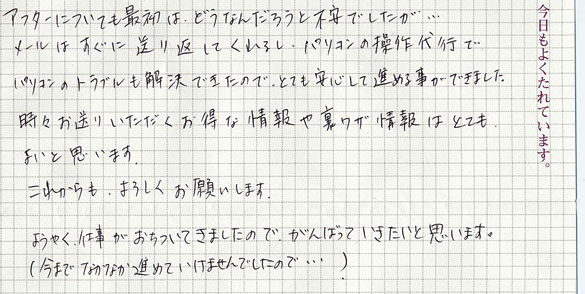 アフターについても最初は、どうなんだろうと不安でしたが…
メールはすぐに送り返してくれるし、パソコンの操作代行で
パソコンのトラブルも解決できたので、とても安心して進める事ができました
時々お送りいただくお得な情報や裏ワザ情報はとても
よいと思います。
これからも、よろしくお願いします。
ようやく、仕事がおちついてきましたので、がんばっていきたいと思います。
(今までなかなか進めていけませんでしたので…)
今日もよくたれています。